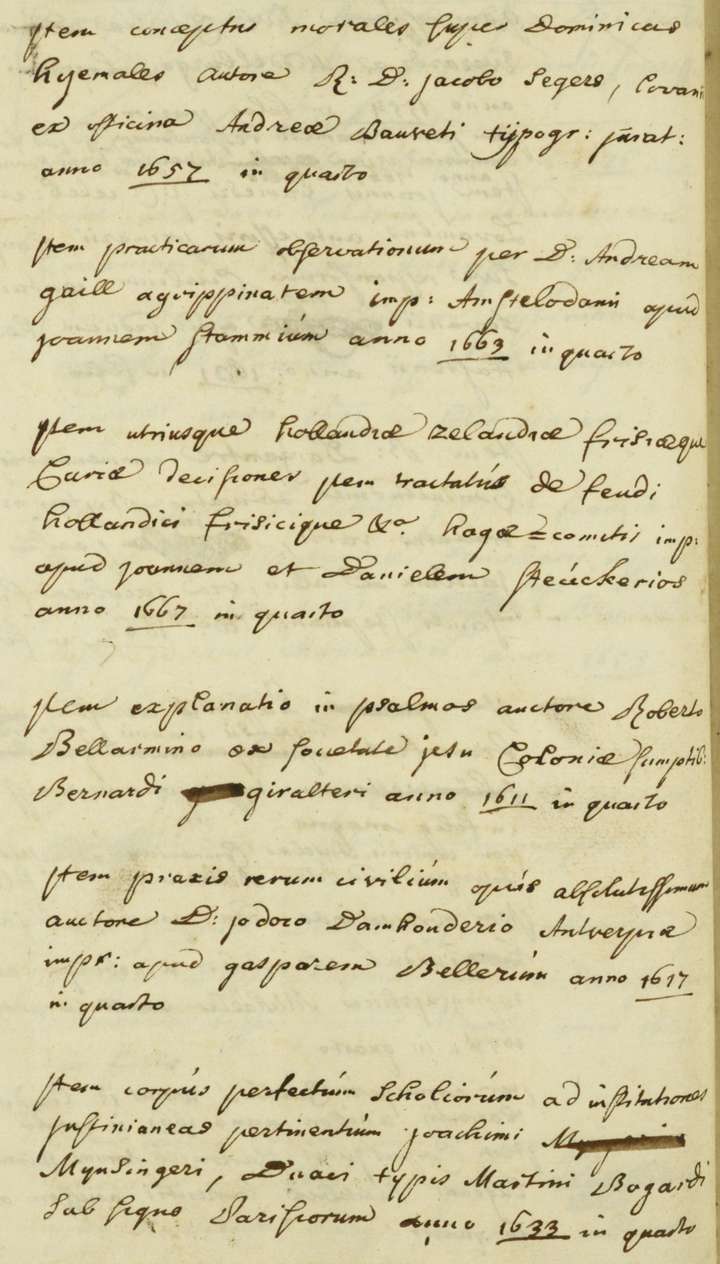 Item conceptus morales super Dominicas
hyemales autore R: D: jacobo Segers, Lovanii
ex officina Andreæ Bauveti typogr: jurat:
anno 1657 in quarto
Item practicarum observationum per D: Andream
gaill agrippinatem imp: Amstelodami apud
joannem Stammium anno 1663 in quarto
Item utriusque hollandiæ zelandiæ frisiæque
Curiæ decisiones item tractatus de feudi
hollandici frisicique &a. hagæ=comitis imp:
apud joannem et Danielem Steuckerios
anno 1667 in quarto
Item explanatio in psalmos auctore Roberto
Bellarmino ex societate jesu Coloniæ sumptib:
Bernardi giralteri anno 1611 in quarto
Item praxis rerum civilium opus absolutissimum
auctore D: jodoco Damhouderio Antverpiæ
impr: apud gasparem Bellerium anno 1617
in quarto
Item corpus perfectum scholiorum ad institutiones
justinianeas pertinentium joachimi
Mynsingeri, Duaci typis Martini Bogardi
sub signo Parisiorum anno 1633 in quarto